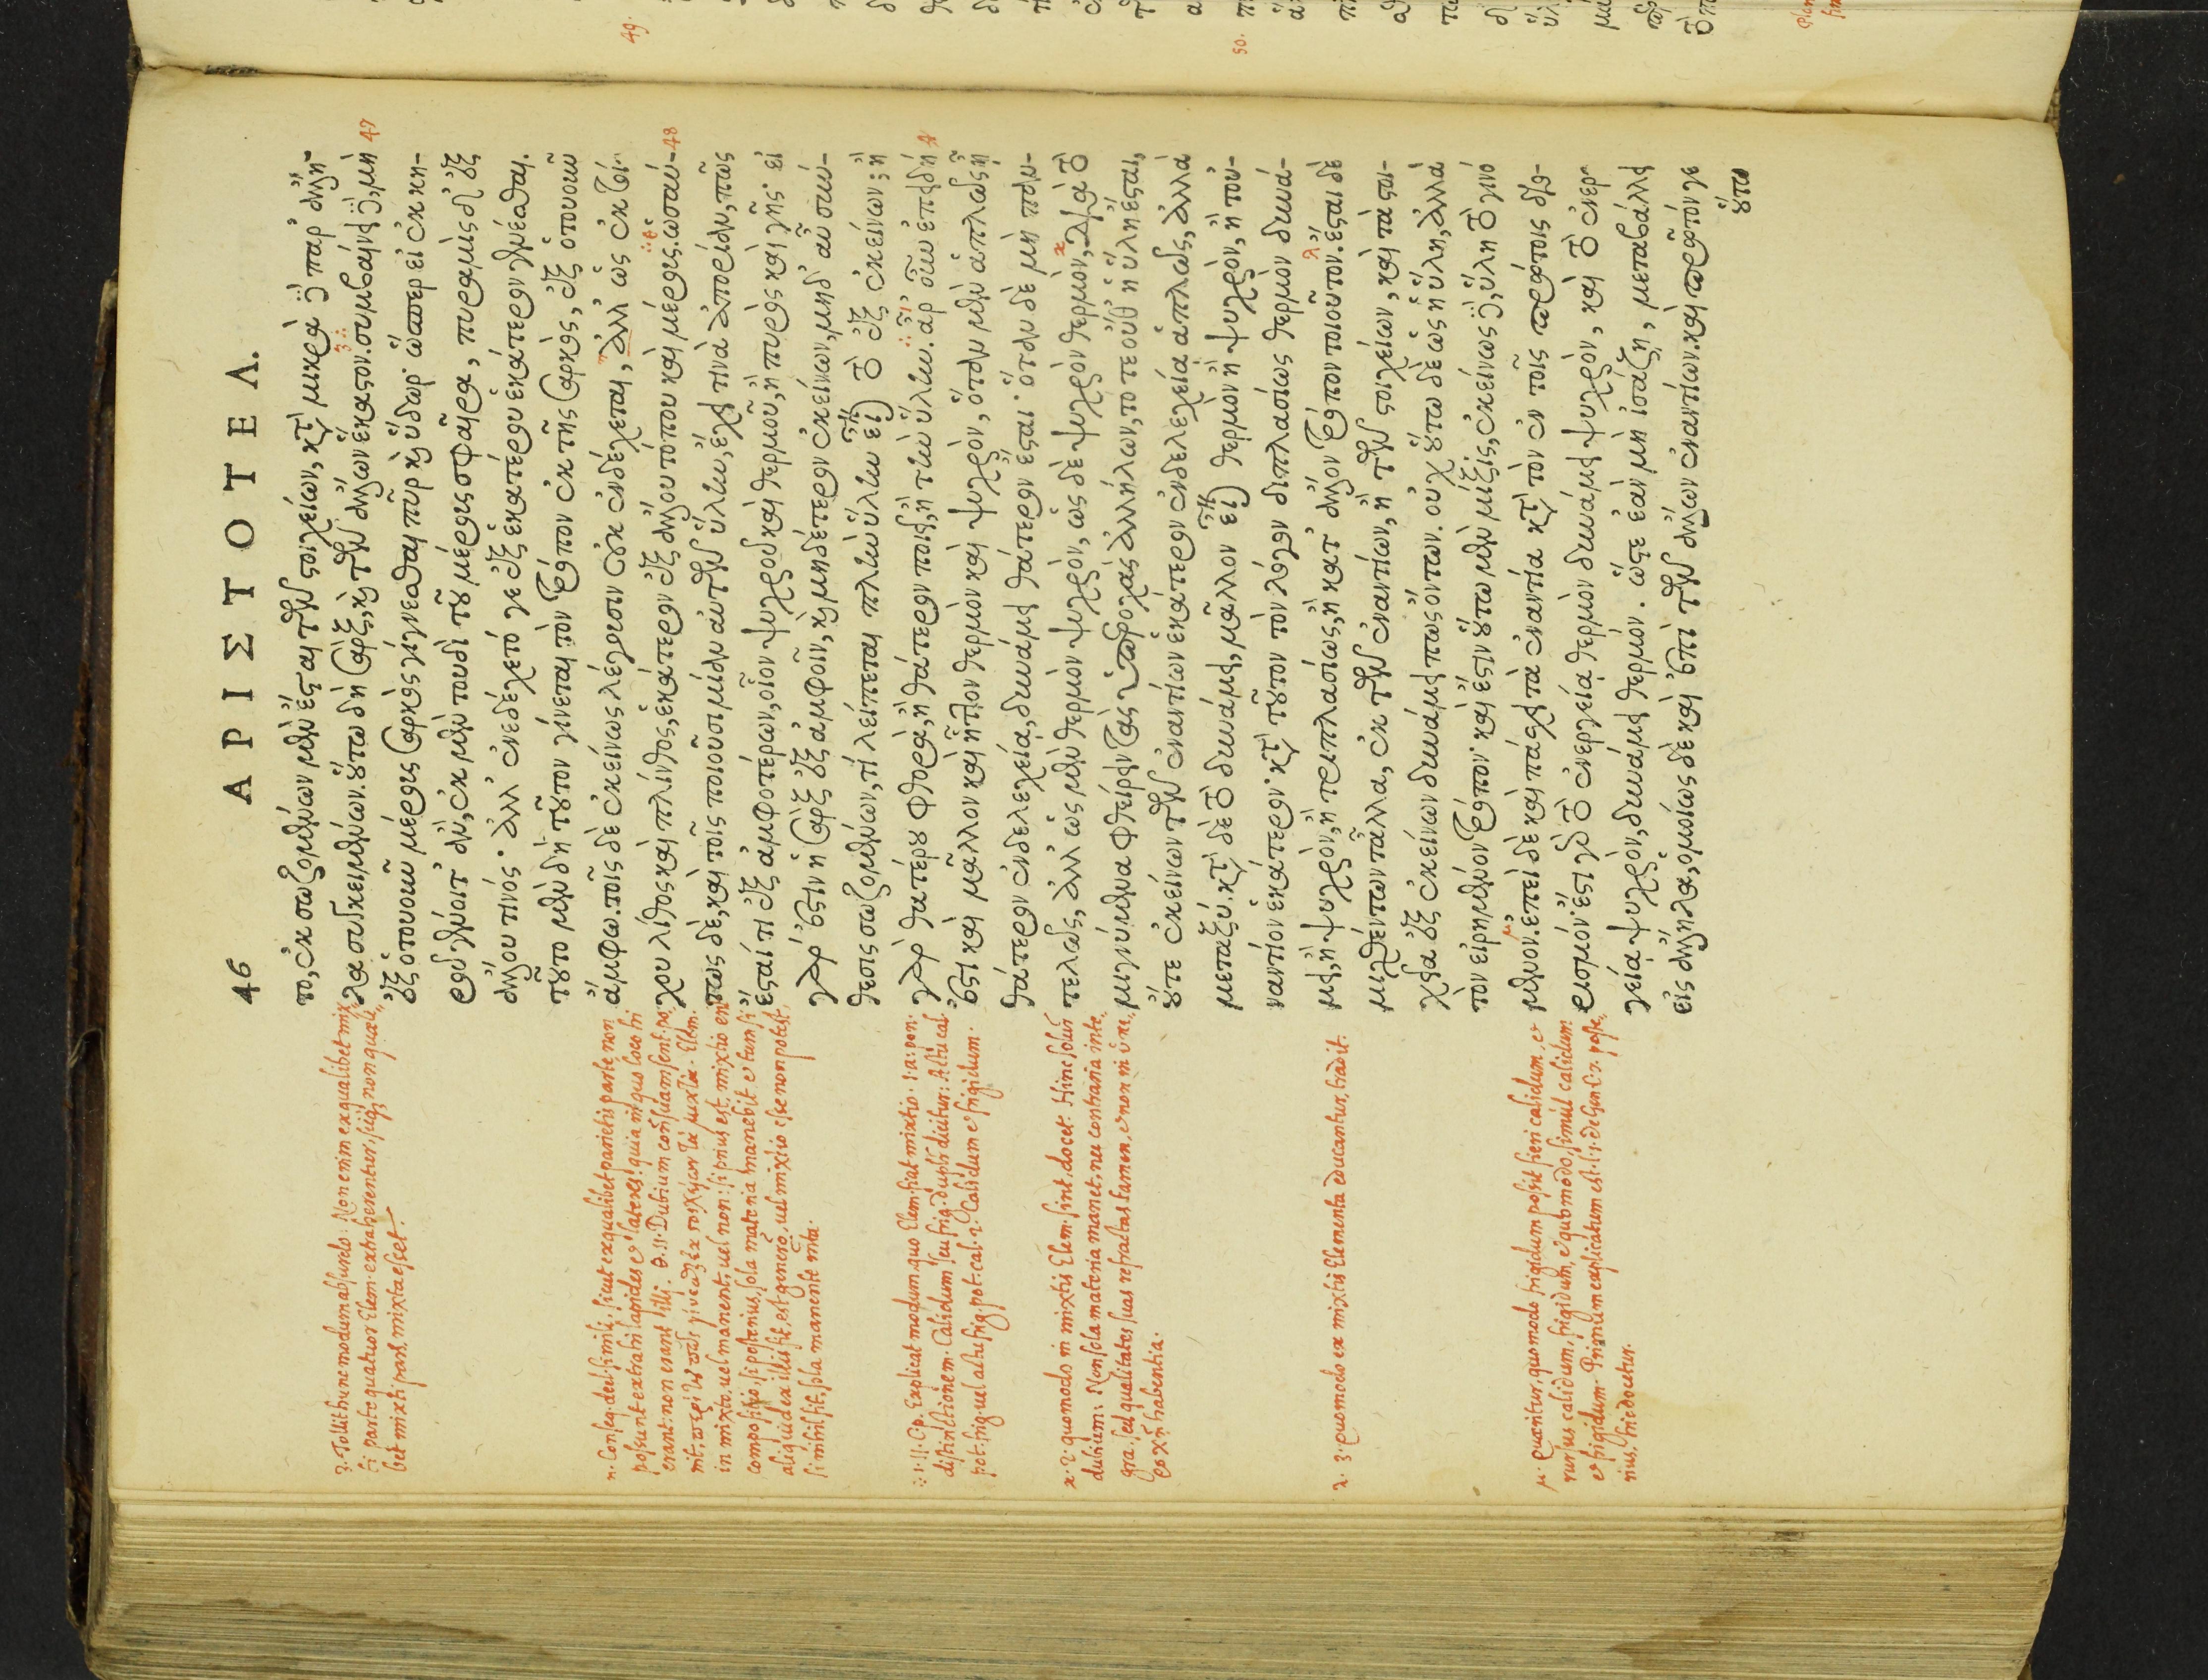 46 ΑΡΙΣΤΟΤΕΛ.
το, ἐκ σωζομένων μὲν ἔσται τῶν στοιχείων, κατὰ μικρὰ δὲ παρ' ἄλλη-
λα συγκειμένων. οὕτω δὴ σὰρξ, καὶ τῶν ἄλλων ἕκαστον. συμβαίνει δὲ, μὴ 47
ἐξ ὁτουοῦν μέρους σαρκὸς γίγνεσθαι πῦρ καὶ ὕδωρ. ὥσπερ εἰ ἐκ κη-
ροῦ γένοιτ' ἂν, ἐκ μὲν τουδὶ τοῦ μέρους σφαῖρα, πυραμὶς δ' ἐξ
ἄλλου τινός. ἀλλ' ἐνεδέχετό γε ἐξ ἑκατέρου ἑκάτερον γενέσθαι.
τοῦτο μὲν δὴ τοῦτον γίνεται τὸν τρόπον ἐκ τῆς σαρκὸς, ἐξ ὁτουοῦν
ἄμφω. τοῖς δὲ ἐκείνως λέγουσιν οὐκ ἐνδέχεται, ἀλλ' ὡς ἐκ τοί-
χου λίθος καὶ πλίνθος, ἑκάτερον ἐξ ἄλλου τόπου καὶ μέρους. ὡσαύ- 48
τως δὲ, καὶ τοῖς ποιοῦσι μίαν αὐτῶν ὕλην, ἔχει τινὰ ἀπορίαν, πῶς
ἔσται τι ἐξ ἀμφοτέρων, οἷον ψυχροῦ καὶ θερμοῦ, ἢ πυρὸς καὶ γῆς. εἰ
γάρ ἐστιν ἡ σὰρξ ἐξ ἀμφοῖν, καὶ μηδέτερον ἐκείνων, μηδ' αὖ σύν-
θεσις σωζομένων, τί λείπεται πλὴν ὕλην εἶναι τὸ ἐξ ἐκείνων; ἡ
γὰρ θατέρου φθορὰ, ἢ θάτερον ποιεῖ, ἢ τὴν ὕλην. ἆρ' οὖν ἐπειδή
ἐστι καὶ μᾶλλον καὶ ἧττον θερμὸν καὶ ψυχρὸν, ὅταν μὲν ἁπλῶς ᾖ
θάτερον ἐνδελεχείᾳ, δυνάμει θάτερον ἔσται. ὅταν δὲ μὴ παν-
τελῶς, ἀλλ' ὡς μὲν θερμὸν ψυχρὸν, ὡς δὲ ψυχρὸν θερμὸν, διὰ τὸ
μιγνύμενα φθείρειν τὰς ὑπεροχὰς ἀλλήλων, τότε οὔθ' ἡ ὕλη ἔσται,
οὔτε ἐκείνων τῶν ἐναντίων ἑκάτερον ἐνδελεχείᾳ ἁπλῶς, ἀλλὰ
μεταξύ. κατὰ δὲ τὸ δυνάμει, μᾶλλον εἶναι θερμὸν ἢ ψυχρὸν, ἢ τοὐ-
ναντίον ἑκάτερον. κατὰ τοῦτον τὸν λόγον διπλασίως θερμὸν δυνά-
μει, ἢ ψυχρὸν, ἢ τριπλασίως, ἢ κατ' ἄλλον τρόπον τοιοῦτον. ἔσται δὲ
μιχθέντων τἆλλα, ἐκ τῶν ἐναντίων, ἢ τῶν στοιχείων, καὶ τὰ στοι-
χεῖα ἐξ ἐκείνων δυνάμει πως ὄντων. οὐχ οὕτω δὲ ὡς ἡ ὕλη, ἀλλὰ
τὸν εἰρημένον τρόπον. καὶ ἔστιν οὕτω μὲν μίξις, ἐκείνως δὲ, ὕλη τὸ γινό
μενον. ἐπεὶ δὲ καὶ πάσχει τὰ ἐναντία κατὰ τὸν ἐν τοῖς πρώτοις διο-
ρισμόν. ἔστι γὰρ τὸ ἐνεργείᾳ θερμὸν δυνάμει ψυχρὸν, καὶ τὸ ἐνερ-
γείᾳ ψυχρὸν, δυνάμει θερμόν. ὥστε ἐὰν μὴ ἰσάζῃ, μεταβάλλει
εἰς ἄλληλα, ὁμοίως δὲ καὶ ἐπὶ τῶν ἄλλων ἐναντίων. καὶ πρῶτόν γε
οὕτω
ȝ. Tollit hunc modum absurdo: Non enim ex qualibet mix
ti parte quatuor Elem. extraherentur, sicq; non quali,,
bet mixti pars, mixta esset.
η. Conseq. decl. simili: sicut ex qualibet parietis parte non
possunt extrahi lapides et lateres: quia in quo loco hi
erant non erant illi. θ. 11. Dubium
in mixto, uel manent, uel non: si prius est, mixtio erit
compositio, si posterius, sola materia manebit et tum si
aliquid ex illis fit, est generatio, uel mixtio esse non potest
si nihil fit, sola manente mta.
Explicat modum, quo Elem. fiat mixtio.
distinctionem. Calidum seu frig. dupl. dicitur: Actu cal
pot. frig. uel actu frig. pot. cal. 2. Calidum et frigidum.
ϰ. 2. quomodo in mixtis Elem. sint, docet. Hinc solui
dubium: Non sola materia manet, nec contraria inte,,
gra, sed qualitates suas refractas tamen, et non in
habentia.
λ. 3. Quomodo ex mixtis Elementa educantur, tradit.
μ. Quæritur, quomodo frigidum possit fieri calidum, et
rursus calidum, frigidum, et quomodo, simul calidum
et frigidum. Primum explicatum est l. 1. de Gen. poste,,
rius, hic docetur.
49.
50.